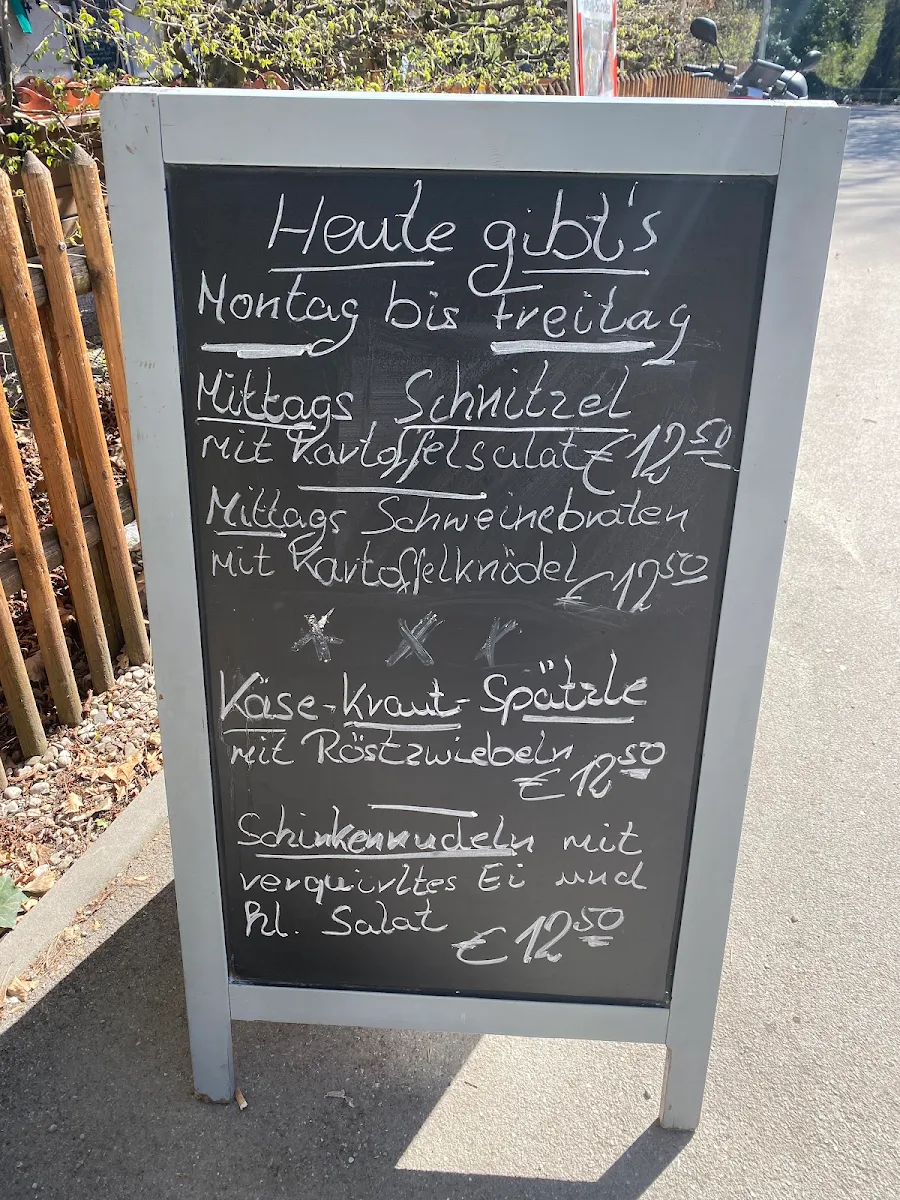 Heute gibt's
Montag bis Freitag
Mittags Schnitzel
mit Kartoffelsalat € 12 50
Mittags Schweinebraten
mit Kartoffelknödel € 12 50
Käse-Kraut-Spätzle
mit Röstzwiebeln
€ 12 50
Schinkennudeln mit
verquirltes Ei und
kl. Salat € 12 50